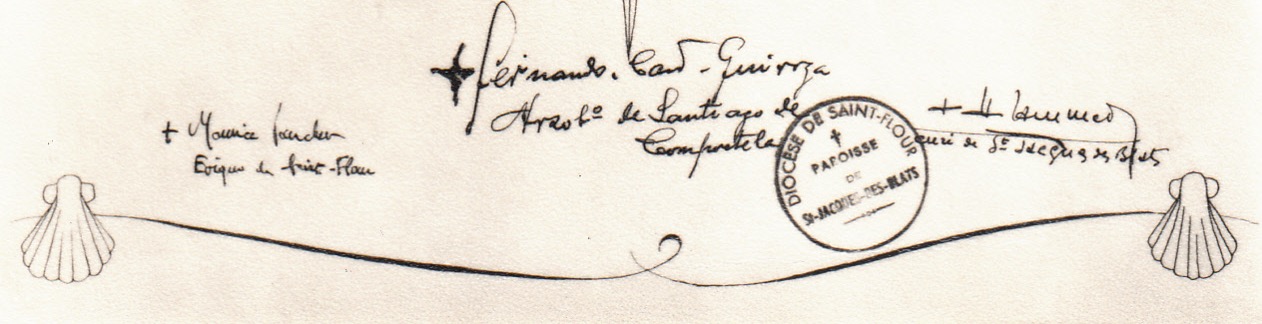 + Maurice
Evêque de Saint-Flour
+ Fernando. Card. Quiroga
Arzobº de Santiago de
Compostela
DIOCÈSE DE SAINT-FLOUR
PAROISSE
DE
St-JACQUES-DES-BLATS
+ H
curé de St Jacques des Blats